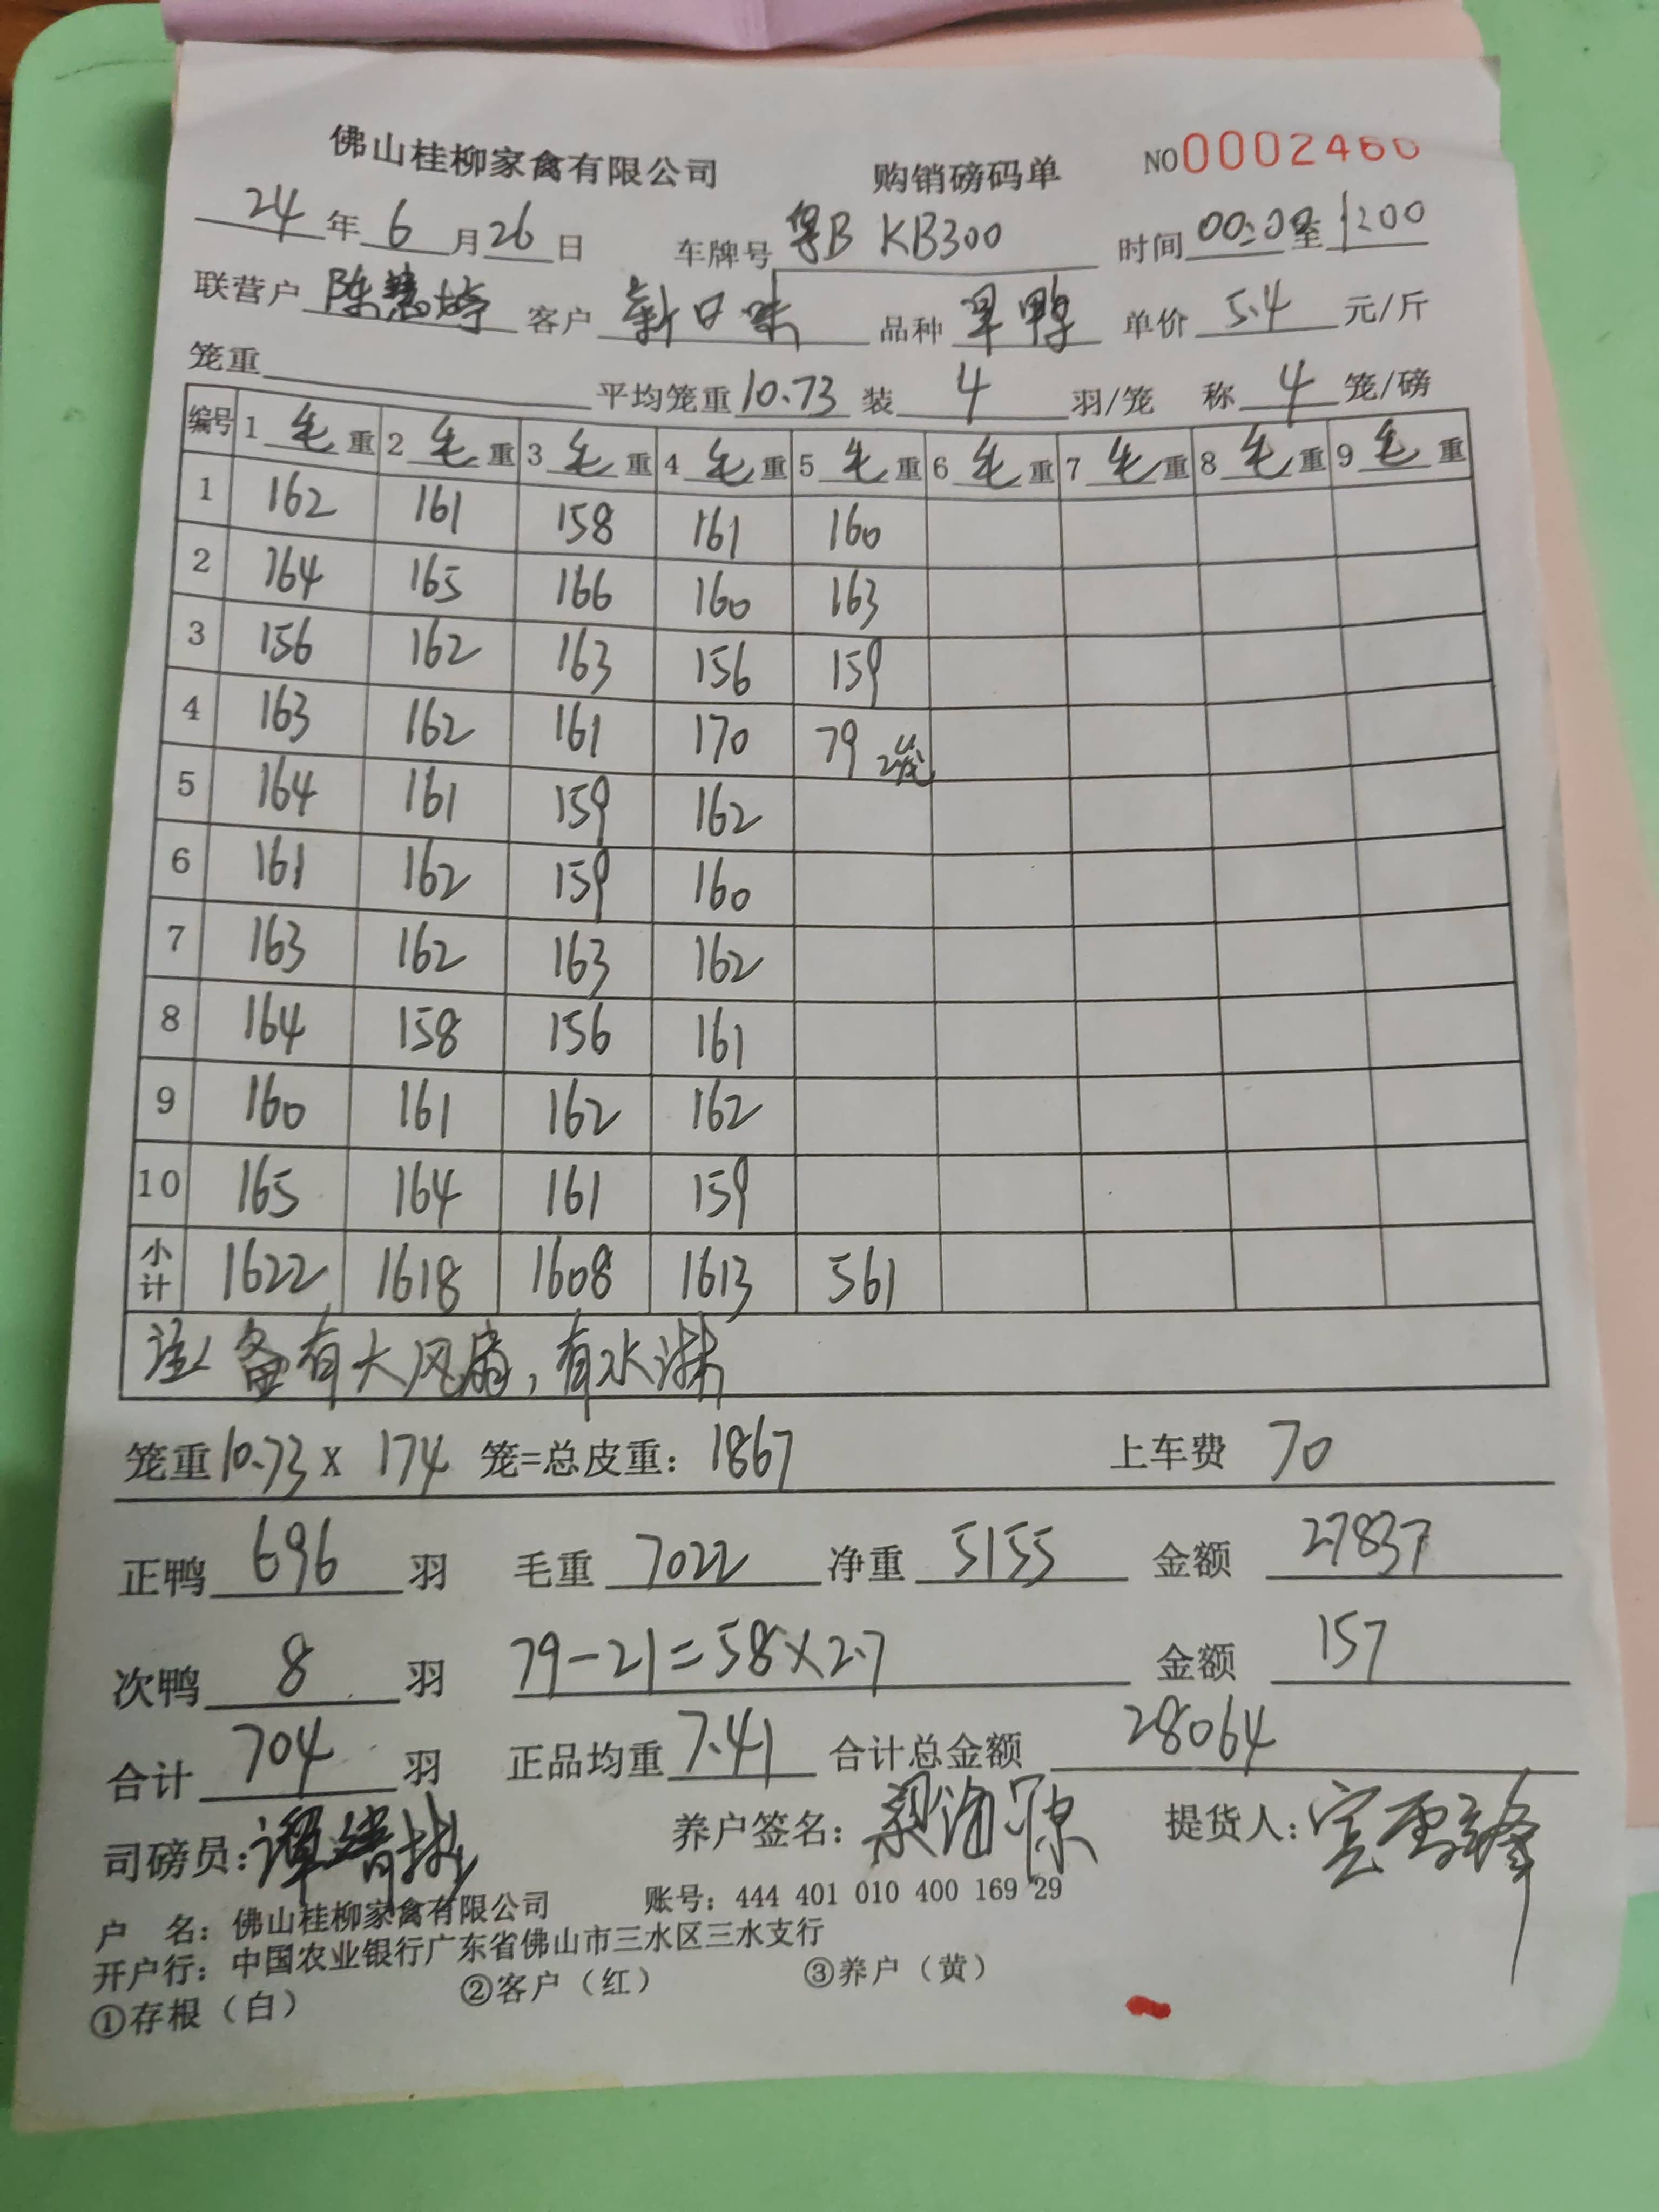 佛山桂柳家禽有限公司 购销磅码单 NO0002460
24年6月26日 车牌号 粤B KB300 时间 00:00至1:00
联营户 陈慧婷 客户 新口味 品种 旱鸭 单价 5.4 元/斤
笼重 平均笼重10.73 装 4 羽/笼 称 4 笼/磅
编号 1 毛 重 2 毛 重 3 毛 重 4 毛 重 5 毛 重 6 毛 重 7 毛 重 8 毛 重 9 毛 重
1 162 161 158 161 160
2 164 165 166 160 163
3 156 162 163 156 159
4 163 162 161 170 79 2笼
5 164 161 159 162
6 161 162 159 160
7 163 162 163 162
8 164 158 156 161
9 160 161 162 162
10 165 164 161 159
小计 1622 1618 1608 1613 561
注: 备有大风扇,有水淋
笼重10.73 x 174 笼=总皮重: 1867 上车费 70
正鸭 696 羽 毛重 7022 净重 5155 金额 27837
次鸭 8 羽 79-21=58×2.7 金额 157
合计 704 羽 正品均重 7.41 合计总金额 28064
司磅员: 养户签名: 提货人:
户 名: 佛山桂柳家禽有限公司 账号: 444 401 010 400 169 29
开户行: 中国农业银行广东省佛山市三水区三水支行
①存根(白) ②客户(红) ③养户(黄)